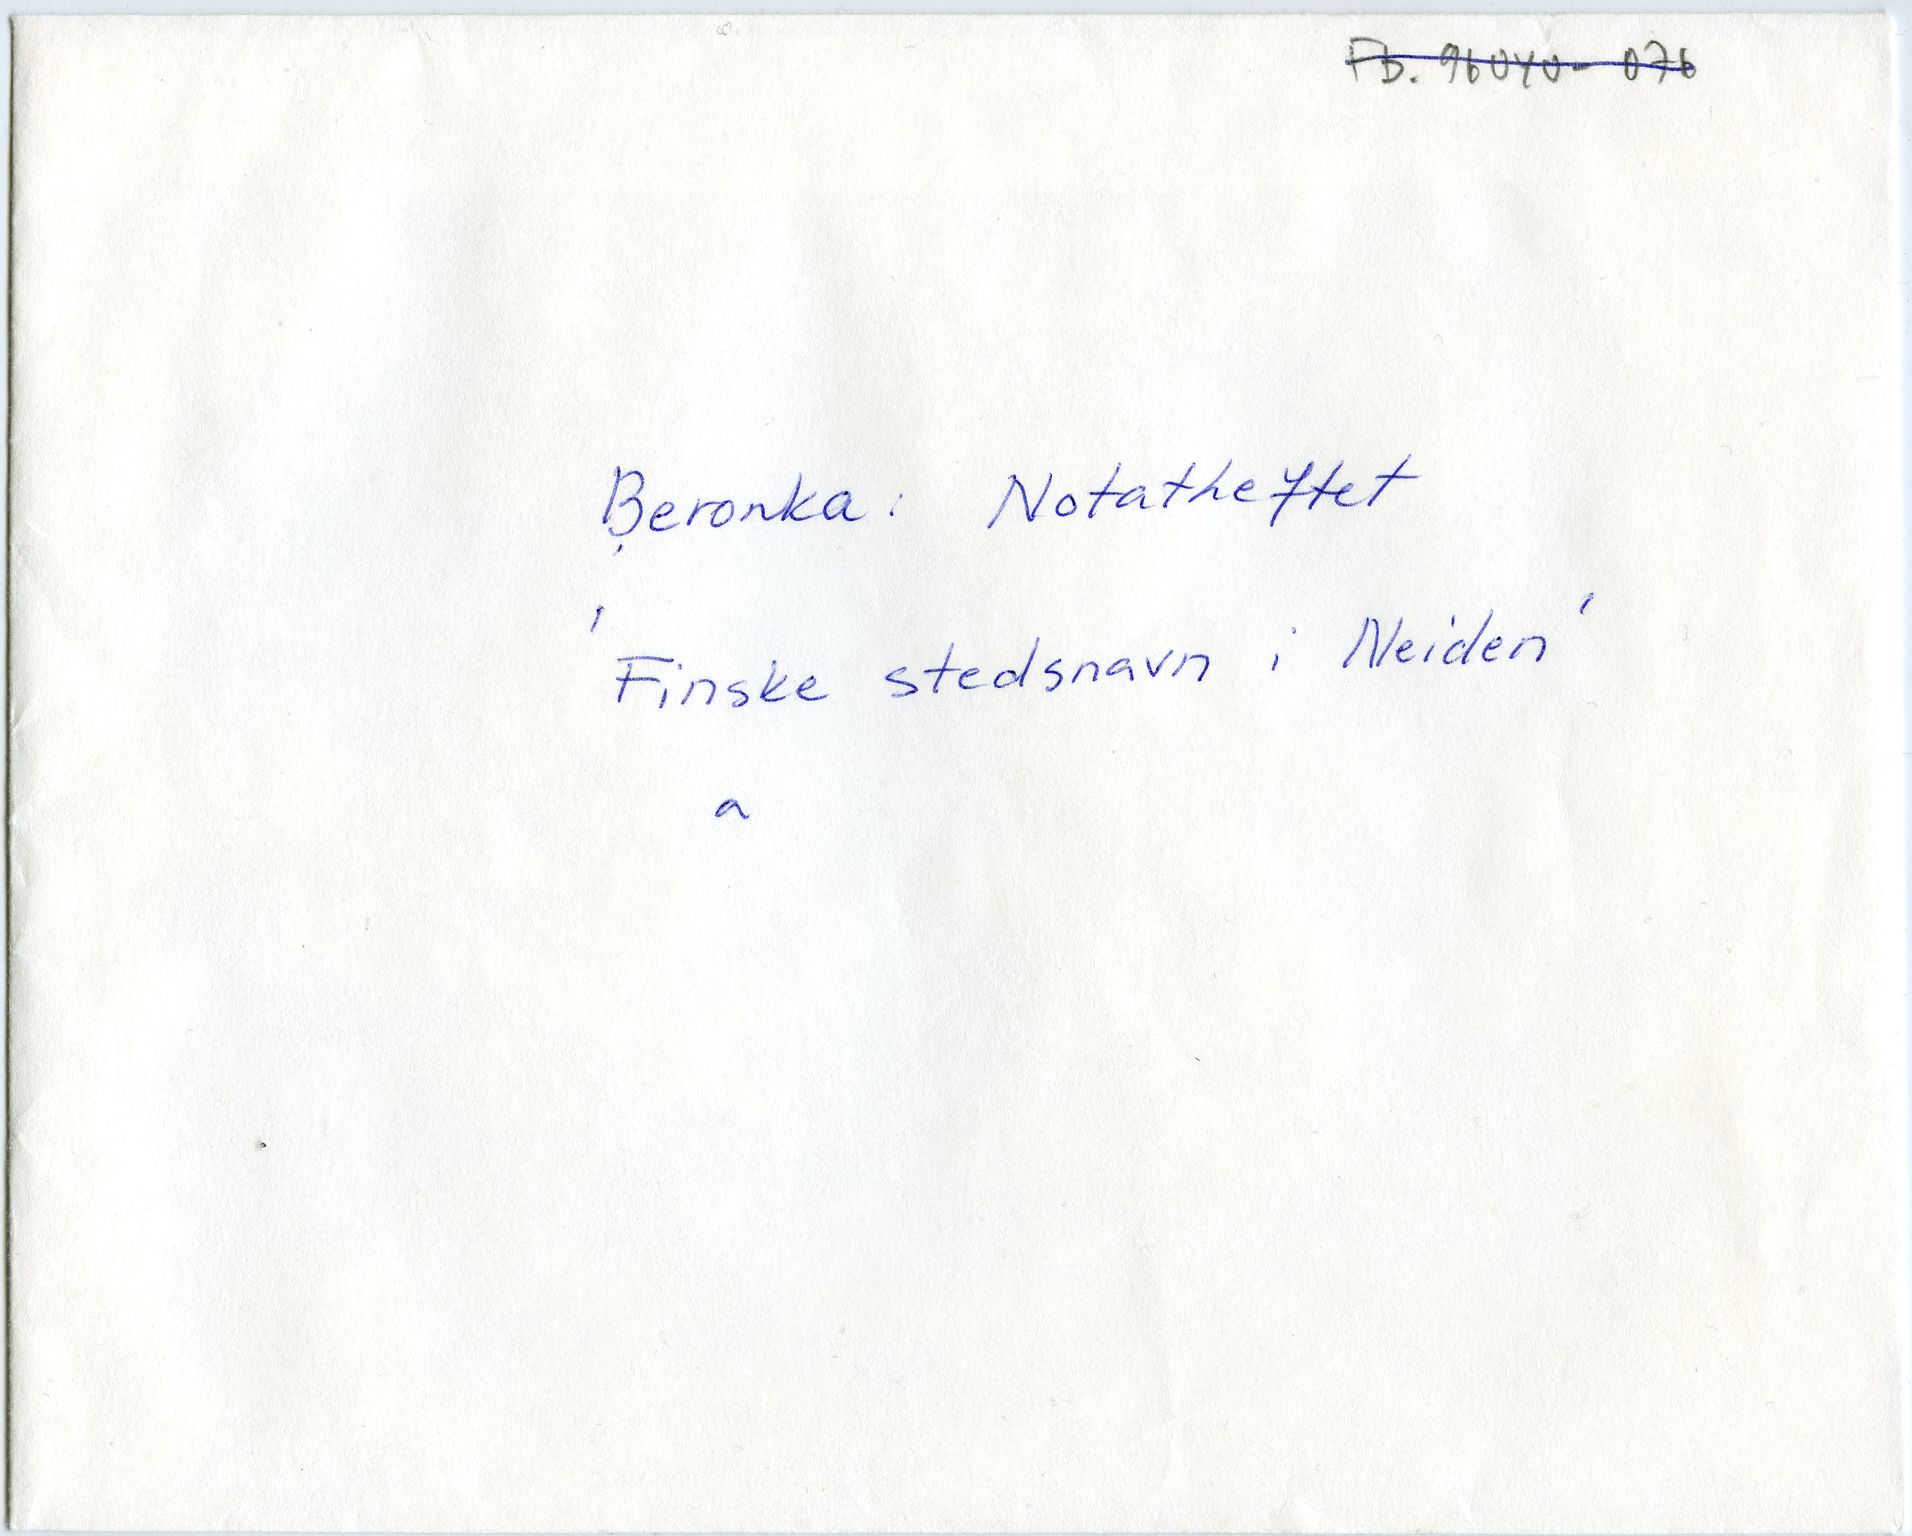 FB. 96040-076
Beronka: Notatheftet
'Finske stedsnavn i Neiden'
a